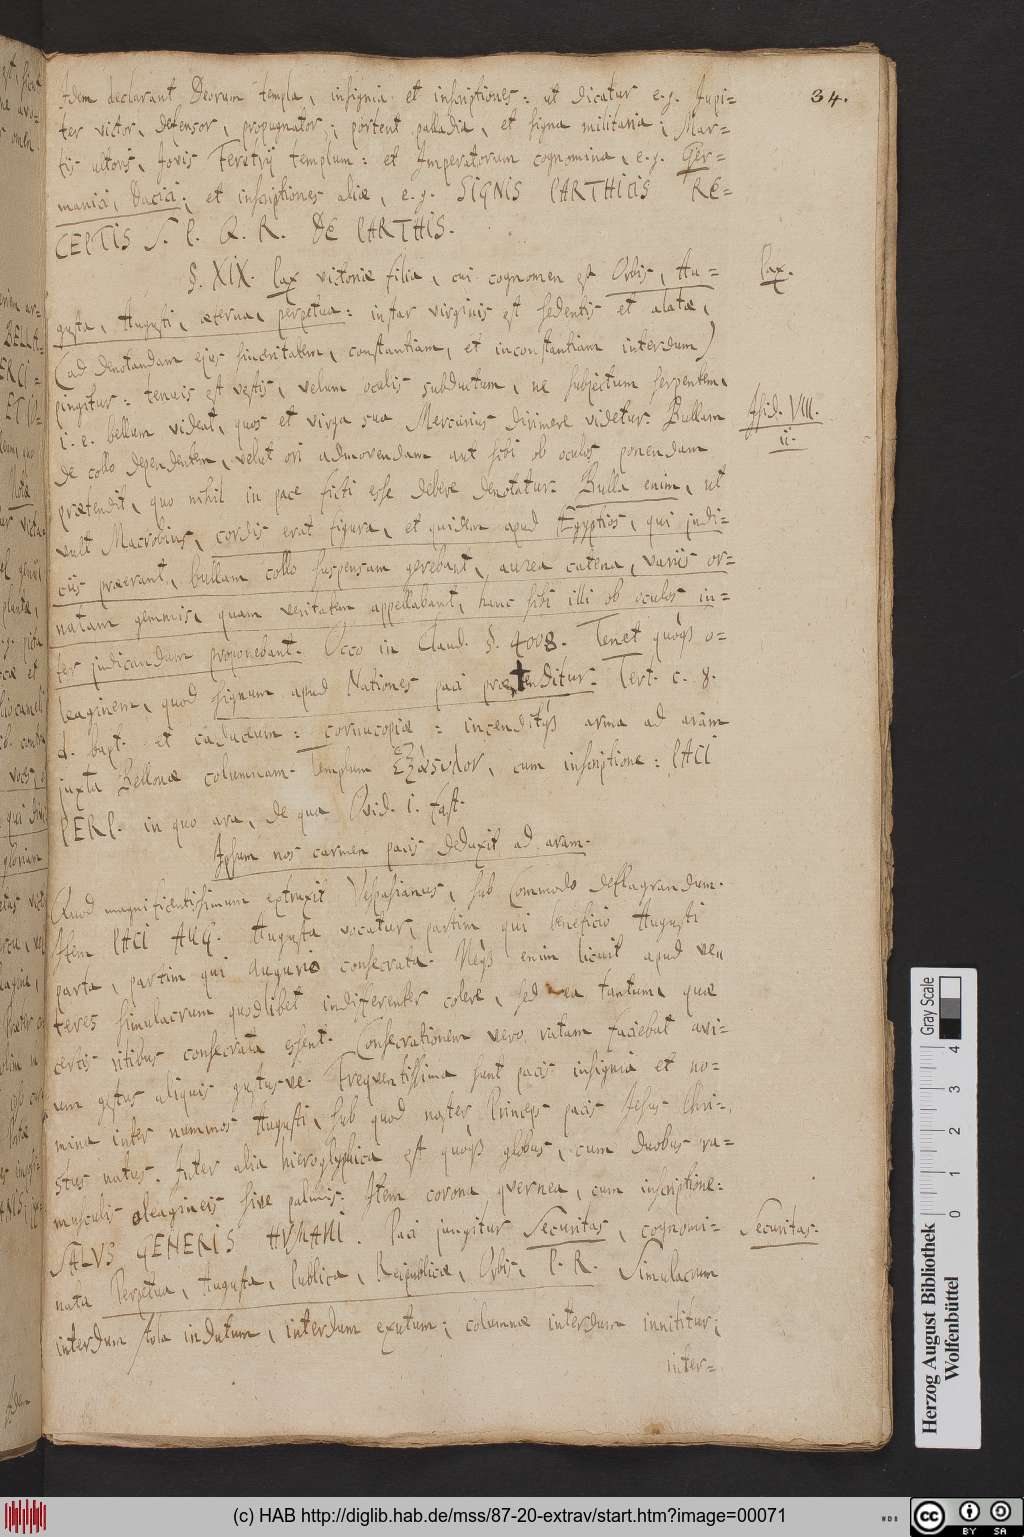 34.
Idem declarant Deorum templa, insignia et inscriptiones: ut dicatur e.g. Jupi=
ter victor, defensor, propugnator; portent palladia, et signa militaria; Mar=
tis ultoris, Jovis Feretrij templum: et Imperatorum cognomina, e.g. Ger=
manici, Dacici; et inscriptiones aliæ, e.g. SIGNIS PARTHICIS RE=
CEPTIS S. P. Q. R. DE PARTHIS.
§. XIX. Pax victoriæ filia, cui cognomen est Orbis, Au=
gusta, Augusti, æterna, perpetua: instar virginis est sedentis et alatæ,
Pax.
(ad denotandam ejus sinceritatem, constantiam, et inconstantiam interdum)
pingitur: tenuis est vestis, velum oculis subductum, ne subjectum serpentem,
i. e. bellum videat, quos et virga sua Mercurius dirimere videtur. Bullam
Isid. VIII.
ii.
de collo dependentem, velut ori admovendam aut sibi ob oculos ponendam
prætendit, quo nihil in pace ficti esse debere denotatur. Bulla enim, ut
vult Macrobius, cordis erat figura, et quidem apud Egyptios, qui judi=
ciis præerant, bullam collo suspensam gerebant, aurea catena, variis or=
natam gemmis, quam veritatem appellabant, hanc sibi illi ob oculos in=
ter judicandum proponebant. Occo in Claud. §. 4008. Tenet quoqꝫ o=
leaginem, quod signum apud Nationes paci prætenditur: Tert. c. 8.
d. bapt. et caduceum: cornucopiæ: incenditqꝫ arma ad aram
juxta Bellonæ columnam. Templum, cum inscriptione: PACI
PERP. in quo ara, de qua Ovid. i. Fast.
Ipsum nos carmen pacis deduxit ad aram.
Quod magnificentissimum extruxit Vespasianus, sub Commodo deflagrandum.
Item PACI AUG. Augusta vocatur, partim qui beneficio Augusti
parta, partim qui augurio consecrata. Neqꝫ enim licuit apud ve=
teres simulacrum quodlibet indifferenter colere, sed ea tantum, quæ
certis ritibus consecrata essent. Consecrationem vero ratam faciebat avi=
um gestus aliquis gustusve. Frequentissima sunt pacis insignia et no=
mina inter nummos Augusti, sub quod noster Princeps pacis Jesus Chri=
stus natus. Inter alia hieroglyphica est quoqꝫ globus, cum duobus ra=
musculis oleagineis sive palmis. Item corona quernea, cum inscriptione:
SALVS GENERIS HVMANI. Paci jungitur Securitas, cognomi=
Securitas.
nata Perpetua, Augusta, Publica, Reipublicæ, Orbis, P. R. Simulacrum
interdum stola indutum, interdum exutum; columnæ interdum innititur;
inter=
Gray Scale
0 1 2 3 4
Herzog August Bibliothek
Wolfenbüttel
(c) HAB http://diglib.hab.de/mss/87-20-extrav/start.htm?image=00071
cc BY SA